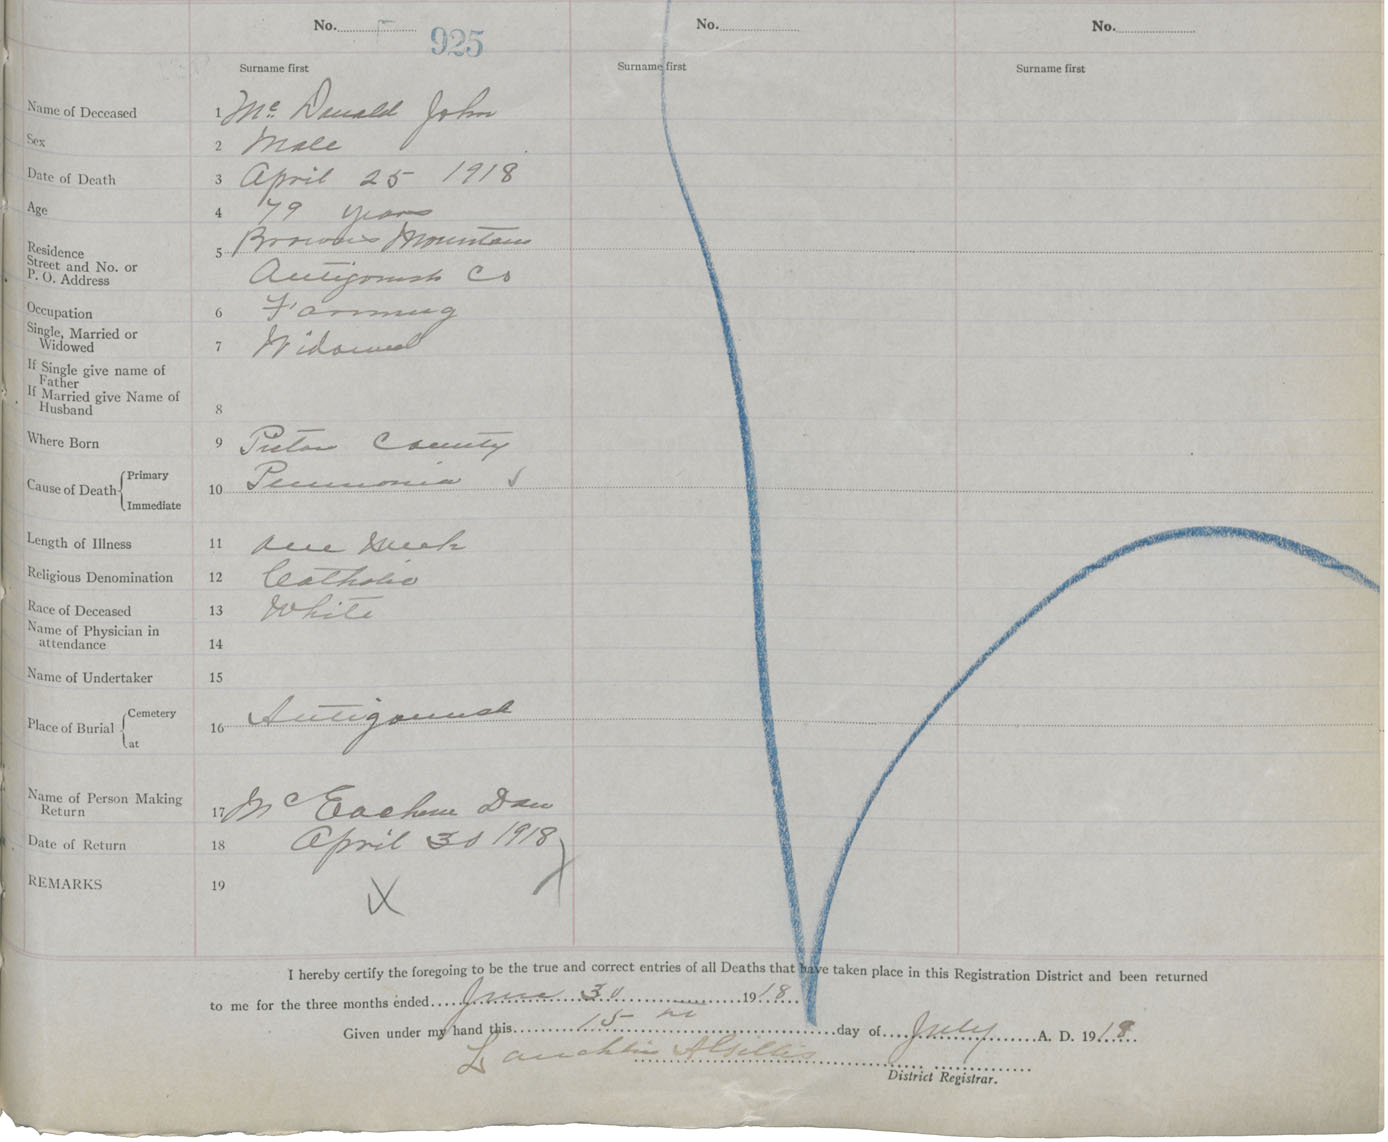 No. 925 No. No.
Surname first Surname first Surname first
Name of Deceased 1 Mc Donald John
Sex 2 Male
Date of Death 3 April 25 1918
Age 4 79 years
Residence 5 Browns Mountain
Street and No. or
P. O. Address Antigonish Co
Occupation 6 Farming
Single, Married or
Widowed 7 Widowed
If Single give name of
Father
If Married give Name of
Husband 8
Where Born 9 Pictou County
Cause of Death { Primary Pneumonia
10
Immediate
Length of Illness 11 one week
Religious Denomination 12 Catholic
Race of Deceased 13 White
Name of Physician in
attendance 14
Name of Undertaker 15
Place of Burial { Cemetery Antigonish
16
at
Name of Person Making
Return 17 Mc Eachern Dan
Date of Return 18 April 30 1918
REMARKS 19 X
I hereby certify the foregoing to be the true and correct entries of all Deaths that have taken place in this Registration District and been returned
to me for the three months ended June 30 1918
Given under my hand this 15 day of July A. D. 1918.
Lauchlin A Gillis
District Registrar.